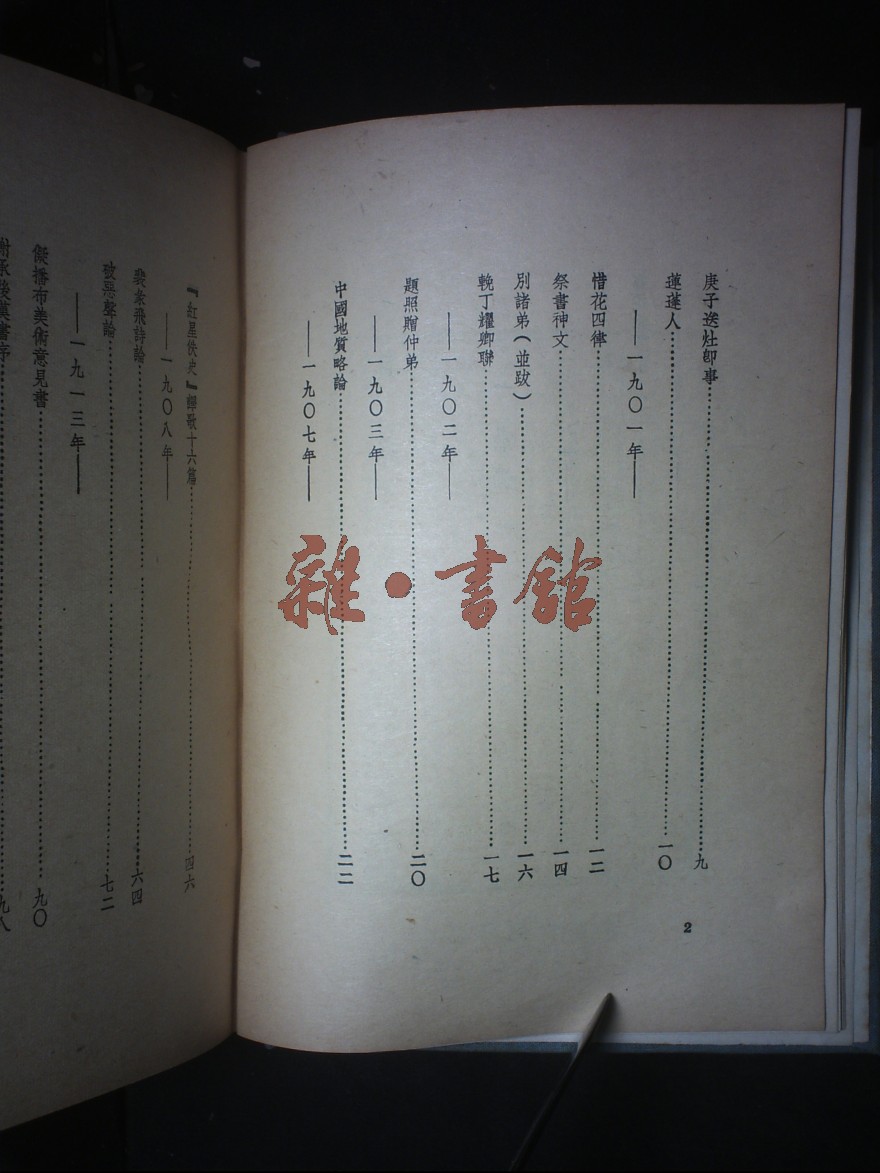 庚子送灶卽事……九
蓮蓬人……一〇
——一九〇一年——
惜花四律……一二
祭書神文……一四
別諸弟（並跋）……一六
輓丁耀卿聯……一七
——一九〇二年——
題照贈仲弟……二〇
——一九〇三年——
中國地質略論……二二
——一九〇七年——
『紅星佚史』譯歌十六篇……四六
——一九〇八年——
裴彖飛詩論……六四
破惡聲論……七二
——一九一三年——
儗播布美術意見書……九〇
謝承後漢書序……九八
2
雜·書館